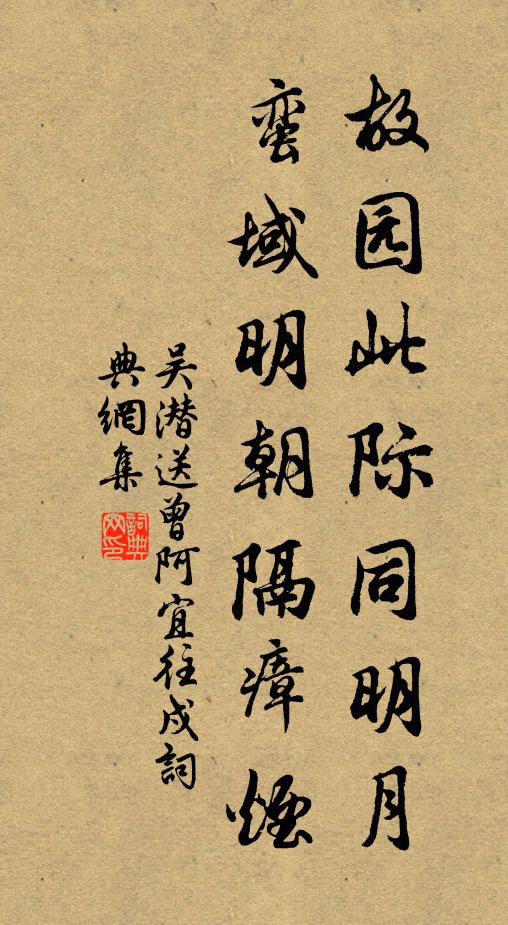 故园此际同明月
蛮域明朝隔瘴烟
吴潜送曾阿宜往戍詞
典網集
詞典网印